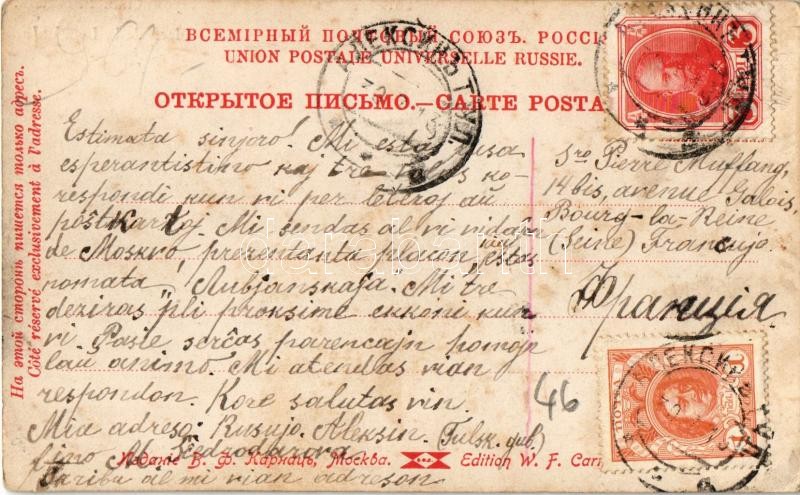 ВСЕМІРНЫЙ ПОЧТОВЫЙ СОЮЗЪ. РОССІ
UNION POSTALE UNIVERSELLE RUSSIE.
ОТКРЫТОЕ ПИСЬМО.—CARTE POSTA
На этой сторонѣ пишется только адресъ.
Côté réservé exclusivement à l'adresse.
Estimata sinjoro! Mi estas rusa
esperantistino kaj tre volas ko-
respondi kun vi per leteroj aŭ
poŝtkartoj. Mi sendas al vi vidaĵn
de Moskvo prezentanta placon, kiu estas
nomata "Lubjanskaja". Mi tre
deziras pli proksime ekkoni kun
vi. Paŝie serĉas parencajn homojn
laŭ animo. Mi atendas vian
respondon. Kore salutas vin.
Mia adreso: Rusujo. Aleksin. (Tulsk. gub)
fino M.
Skribu al mi vian adreson
Sro Pierre Muffang,
14 bis, avenue Galois,
Bourg-la-Reine
(Seine) Francujo.
Франція
46
АЛЕКСИНЪ ТУЛ.
Изданіе В. Ф. Карнацъ, Москва.
Edition W. F. Cari
darabanth